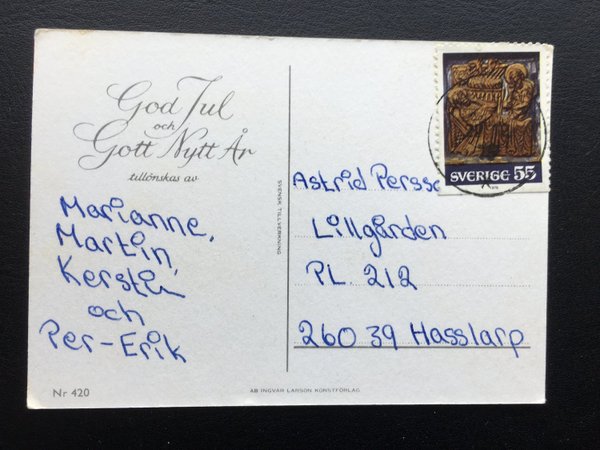 God Jul
och
Gott Nytt År
tillönskas av
Marianne,
Martin,
Kerstin
och
Per-Erik
Nr 420
SVENSK TILLVERKNING
AB INGVAR LARSON KONSTFÖRLAG
SVERIGE 55
Astrid Persso
Lillgården
PL. 212
260 39 Hasslarp